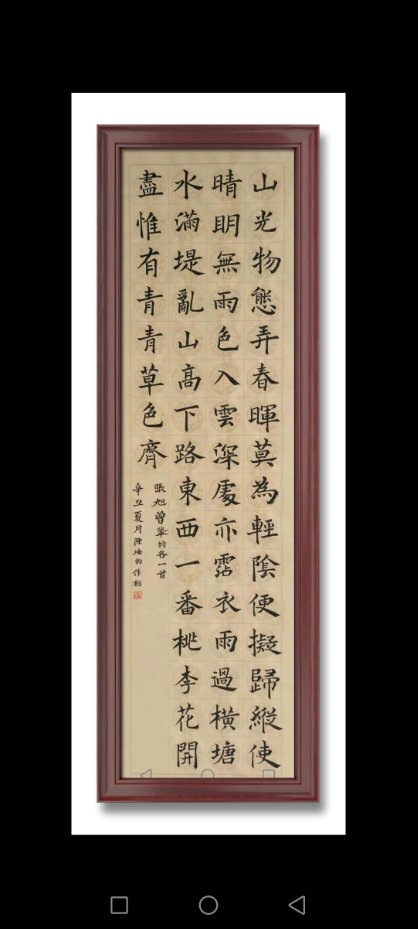 山光物態弄春暉莫為輕陰便擬歸縱使
晴明無雨色入雲深處亦霑衣雨過橫塘
水滿堤亂山高下路東西一番桃李花開
盡惟有青青草色齊
張旭曾鞏詩各一首
辛丑夏月陳